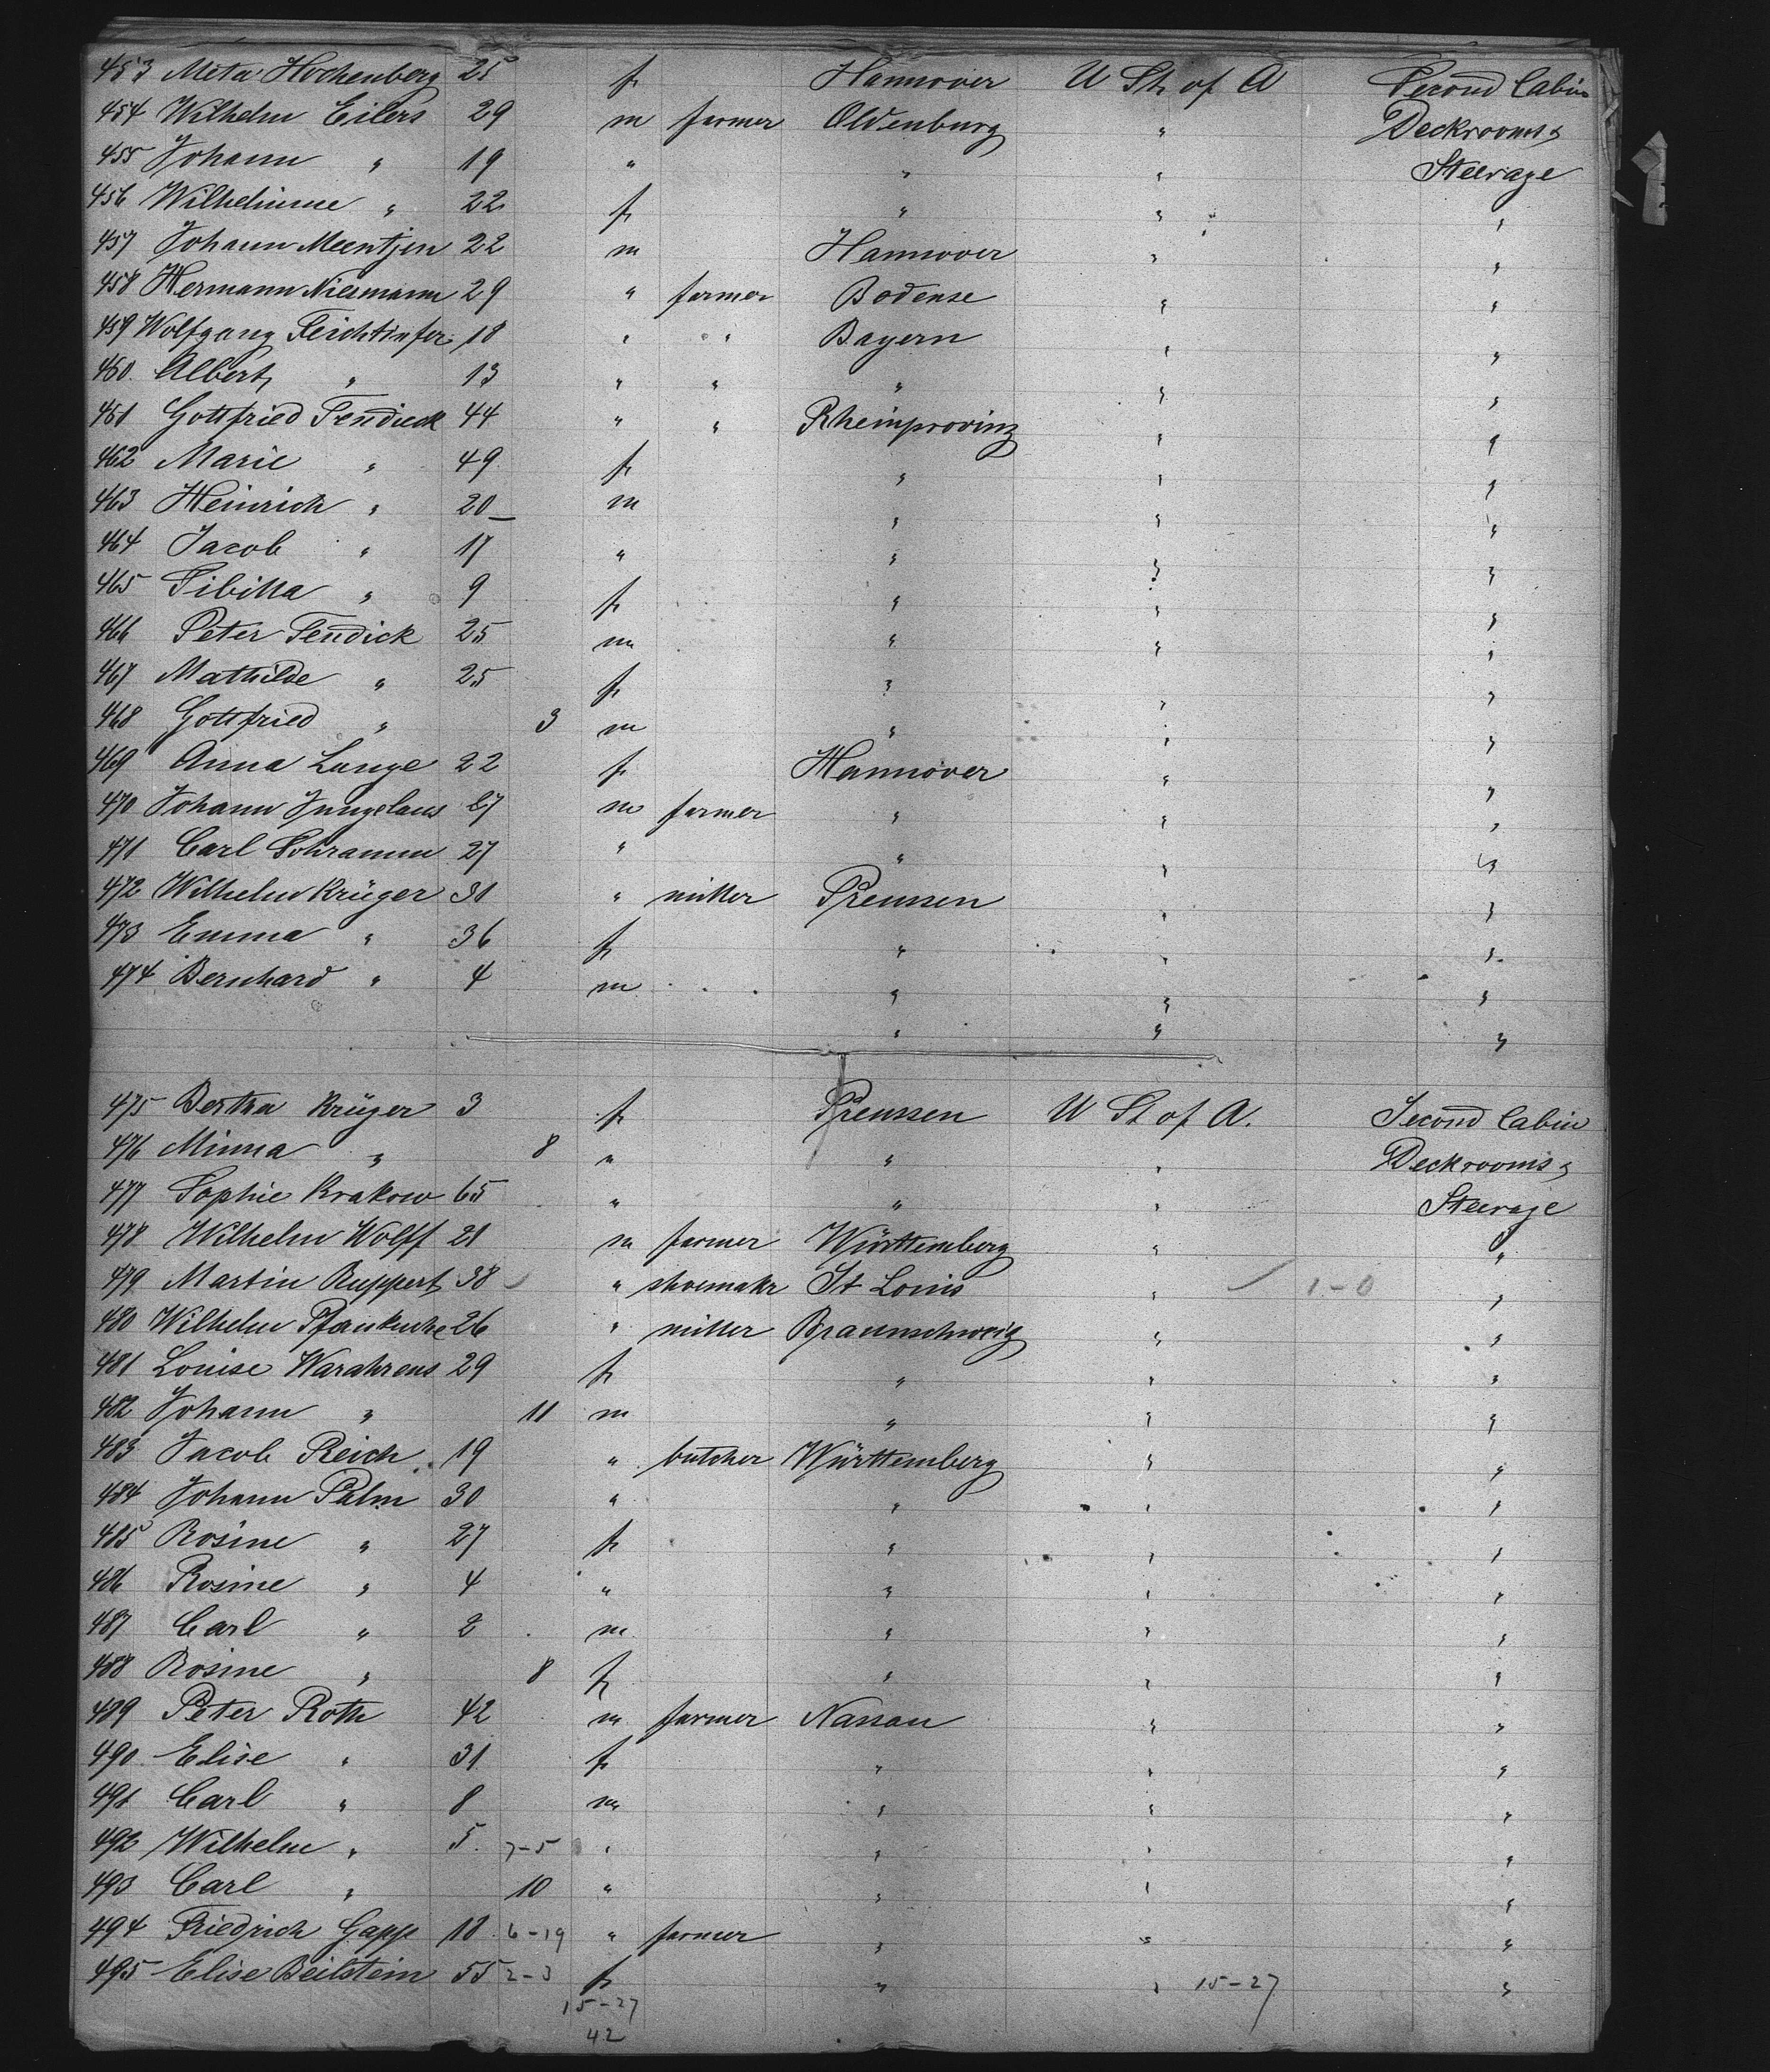 453 Meta Hochenberg 25 f Hannover U St of A Second Cabin
454 Wilhelm Eilers 29 m farmer Oldenburg " Deckrooms &
455 Johann " 19 " " " Steerage
456 Wilhelmine " 22 f " " "
457 Johann Meentjen 22 m Hannover " "
458 Hermann Niemann 29 " farmer Bodense " "
459 Wolfgang 18 " " Bayern " "
460 Albert " 13 " " " " "
461 Gottfried Fendick 44 " " Rheinprovinz " "
462 Marie " 49 f " " "
463 Heinrich " 20 m " " "
464 Jacob " 17 " " " "
465 Sibilla " 9 f " " "
466 Peter Fendick 25 m " " "
467 Mathilde " 25 f " " "
468 Gottfried " 3 m " " "
469 Anna Lange 22 f Hannover " "
470 Johann Jungclaus 27 m farmer " " "
471 Carl Schramm 27 " " " "
472 Wilhelm Krüger 31 " miller Preussen " "
473 Emma " 36 f " " "
474 Bernhard " 4 m " " "
" " "
475 Bertha Krüger 3 f Preussen U St of A. Second Cabin
476 Minna " 8 " " " Deckrooms &
477 Sophie Krakow 65 " " " Steerage
478 Wilhelm Wolff 21 m farmer Württemberg " "
479 Martin Ruppert 38 " shoemakr St Louis " 1-0 "
480 Wilhelm Pfankuche 26 " miller Braunschweig " "
481 Louise Warahrens 29 f " " "
482 Johann " 11 m " " "
483 Jacob Reich 19 " butcher Württemberg " "
484 Johann Palm 30 " " " "
485 Rosine " 27 f " " "
486 Rosine " 4 " " " "
487 Carl " 2 m " " "
488 Rosine " 8 f " " "
489 Peter Roth 42 m farmer Nassau " "
490 Elise " 31 f " " "
491 Carl " 8 m " " "
492 Wilhelm " 5 7-5 " " " "
493 Carl " 10 " " " "
494 Friedrich Gapp 18 6-19 " farmer " " "
495 Elise Beilstein 55 2-3 f " " 15-27 "
15-27
42